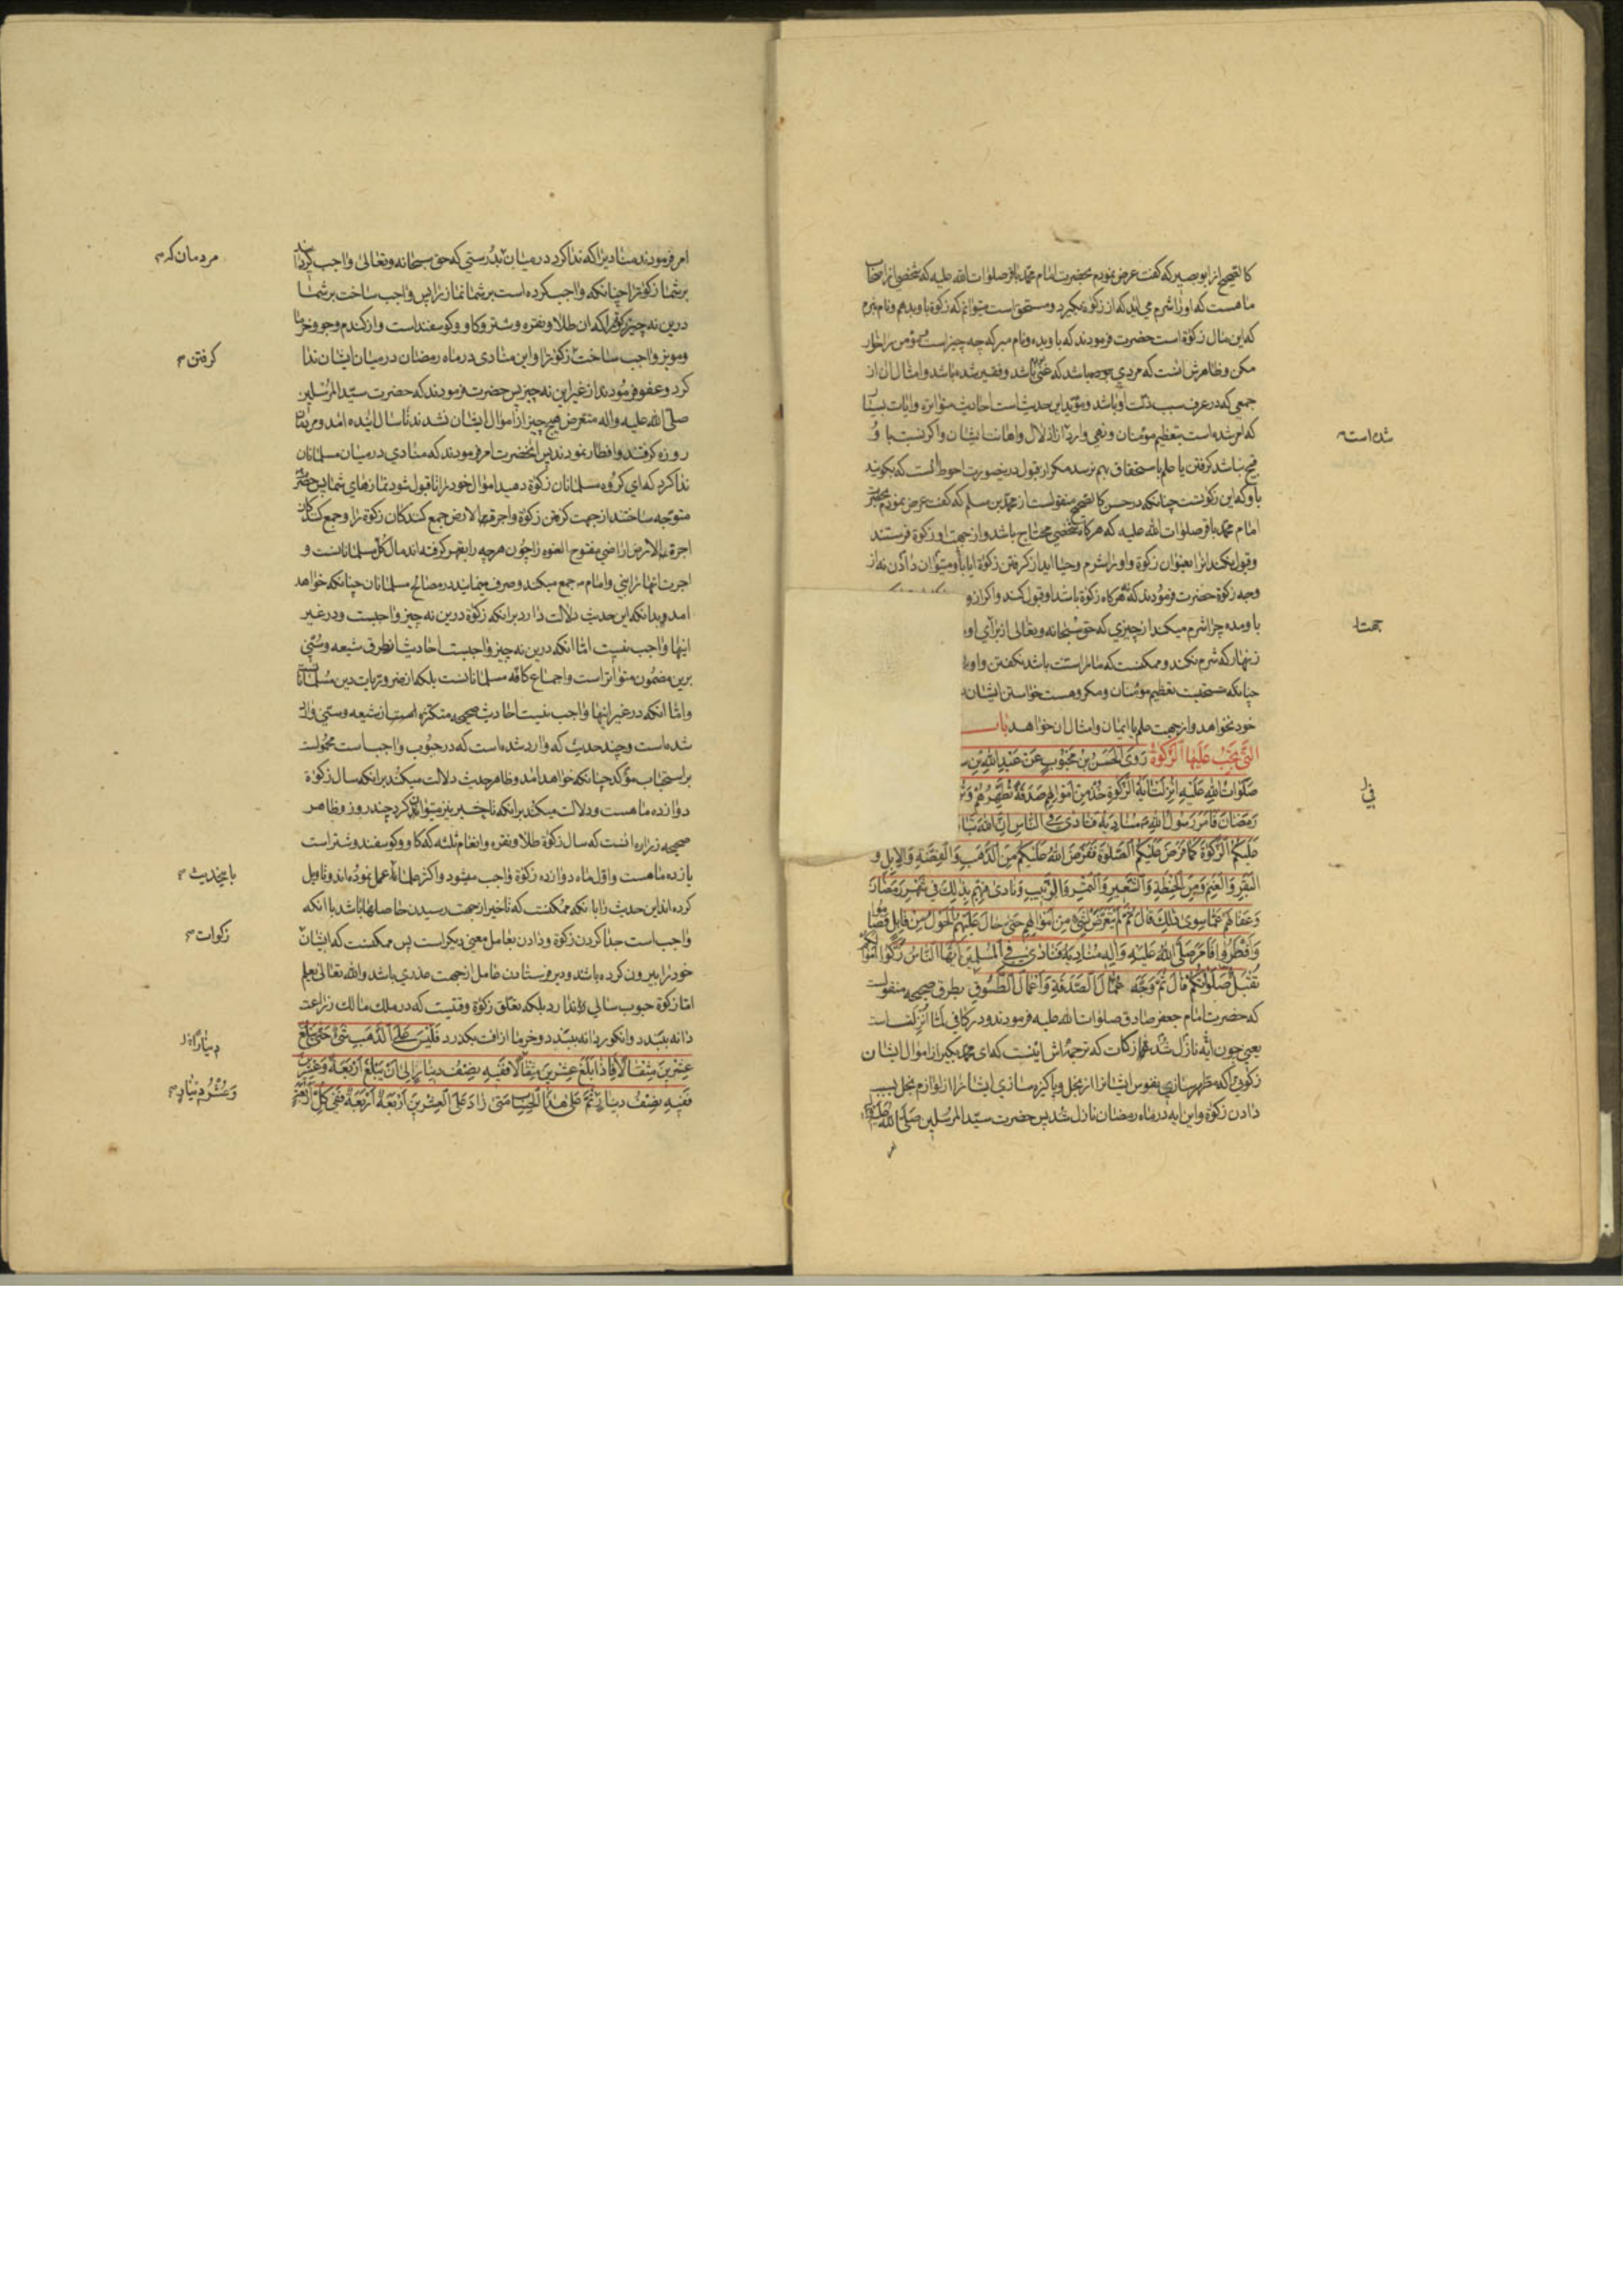 كالصحیح از ابوبصیر که گفت عرض نمودم بحضرت امام محمد باقر صلوات الله علیه که شخصی از اصحاب
ما هست که او را شرم می آید که از زکوة بگیرد و مستحق است میتوانم که زکوة باو بدهم و نام نبرم
که این مال زکوة است حضرت فرمودند که باو بده و نام مبر که چه چیز است و مؤمن را خوار
مکن و ظاهرش آنست که مردی باشد که غنی باشد و فقیر شده باشد و امثال آن از
جمعی که در عرف سبب ذلت او باشد و مؤید این حدیث است احادیث متواتره و آیات بسیار
که امر شده است بتعظیم مؤمنان و نهی وارد از اذلال و اهانت ایشان و اگر نسبت با و
شده است
قبیح نباشد گرفتن یا علم باستحقاق بهم نرسد مگر از قول در یصورت احوط آنست که بگویند
باو که این زکوتست چنانکه در حسن کالصحیح منقولست از محمد بن مسلم که گفت عرض نمودم بحضرت
امام محمد باقر صلوات الله علیه که هرگاه شخصی محتاج باشد و از جهت او زکوة فرستند
و قبول نکند آنرا بعنوان زکوة و او را شرم و حیا آید از گرفتن زکوة آیا باو میتوان دادن نه از
وجه زکوة حضرت فرمودند که هرگاه زکوة باشد او قبول کند و اگر از و
باو مده چرا شرم میکند از چیزی که حق سبحانه و تعالی از برای او
جهت
زنهار که شرم نکند و ممکنست که مدار است باشد نگفتن و او را
چنانکه مستحبت تعظیم مؤمنان و مکروهست خواستن ایشان
خود نخواهد و از جهت علم یا ایمان و امثال آن خواهد باب
التي تجب عليها الزكوة روى الحسن بن محبوب عن عبد الله بن س
صلوات الله عليه انزلت آية الزكوة خذ من اموالهم صدقة تطهرهم و
في
رمضان فامر رسول الله ص مناديه فنادى في الناس ان الله تبا
عليكم الزكوة كما فرض عليكم الصلوة ففرض الله عليكم من الذهب والفضة والابل و
البقر والغنم ومن الحنطة والشعير والتمر والزبيب ونادى فيهم بذلك في شهر رمضان
وعفا لهم عما سوى ذلك قال ثم لم يتعرض لشيء من اموالهم حتى حال عليهم الحول من قابل فصاموا
وافطروا فامر صلى الله عليه وآله مناديه فنادى في المسلمين ايها الناس زكوا اموالكم
تقبل صلواتكم قال ثم وجه عمال الصدقة وعمال الطسوق بطرق صحیحه منقولست
که حضرت امام جعفر صادق صلوات الله علیه فرمودند و در کافی لما انزلت است
یعنی چون آیه نازل شد که ترجمه اش اینست که ای محمد بگیر از اموال ایشان
زکوتی را که مطهر سازی نفوس ایشانرا از بخل و پاکیزه سازی ایشانرا از لوازم بخل بسبب
دادن زکوة و این آیه در ماه رمضان نازل شد پس حضرت سید المرسلین صلى الله علیه وآله
امر
امر فرمودند منادیرا که ندا کرد در میان بدرستی که حق سبحانه و تعالی واجب گردانید
مردمان که
بر شما زکوة را چنانکه واجب کرده است بر شما نماز را پس واجب ساخت بر شما
درین نه چیز زکوة را که آن طلا و نقره و شتر و گاو و گوسفند است و از گندم و جو و خرما
و مویز واجب ساخت زکوة را و این منادی در ماه رمضان در میان ایشان ندا
گرفتن
کرد و عفو فرمودند از غیر این نه چیز پس حضرت فرمودند که حضرت سید المرسلین
صلى الله علیه واله متعرض هیچ چیز از اموال ایشان نشدند تا سال آینده آمد و مردمان
روزه گرفتند و افطار نمودند پس آنحضرت امر فرمودند که منادی در میان مسلمانان
ندا کرد که ای گروه مسلمانان زکوة دهید اموال خود را تا قبول شود نمازهای شما پس حضرت
متوجه ساختند از جهت گرفتن زکوة و اجرتهای الارض جمع کنندگان زکوة را و جمع کنندگان
اجرة الارض اراضی مفتوح العنوه را چون هر چه را بقهر گرفته اند مال کل مسلمانانست و
اجرت آنها را نبی و امام جمع میکند و صرف مینمایند در مصالح مسلمانان چنانکه خواهد
آمد و بدانکه این حدیث دلالت دارد برانکه زکوة درین نه چیز واجبست و در غیر
اینها واجب نیست اما آنکه درین نه چیز واجبست احادیث از طرق شیعه و سنی
برین مضمون متواتر است و اجماع کافه مسلمانانست بلکه از ضروریات دین مسلمانانست
و اما آنکه در غیر اینها واجب نیست احادیث صحیحه متکثره است از شیعه و سنی وارد
شده است و چند حدیث که وارد شده است که در حبوب واجب است محمولست
بر استحباب مؤکد چنانکه خواهد آمد و ظاهر حدیث دلالت میکند برانکه سال زکوة
دوازده ماهست و دلالت میکند برانکه تاخیر نیز میتوان کرد چند روز و ظاهر
صحیحه زراره آنست که سال زکوة طلا و نقره و انعام ثلثه که گاو و گوسفند و شتر است
یازده ماهست و اول ماه دوازده زکوة واجب میشود و اکثر علما عمل نموده اند و تاویل
باینحدیث
کرده اند این حدیث را با آنکه ممکنست که تاخیر از جهت رسیدن حاصلها باشد با آنکه
واجب است جدا کردن زکوة و دادن بعامل معنی دیگر است پس ممکنست که ایشان
زکوات
خود را بیرون کرده باشند و دیر فرستادن عامل از جهت عذری باشد والله تعالی یعلم
اما زکوة حبوب سالی ندارد بلکه تعلق زکوة وقتیست که در ملك مالك زراعت
دانه ببندد و انگور دانه ببندد و خرما از آفت بگذرد فليس على الذهب شيء حتى يبلغ
عشرين مثقالا فاذا بلغ عشرين مثقالا ففيه نصف دينار الى ان يبلغ اربعة وعشرين
دینار
ففيه نصف دينار ثم على هذا الحساب متى زاد على العشرين اربعة اربعة ففي كل اربعة
وعشر دینار